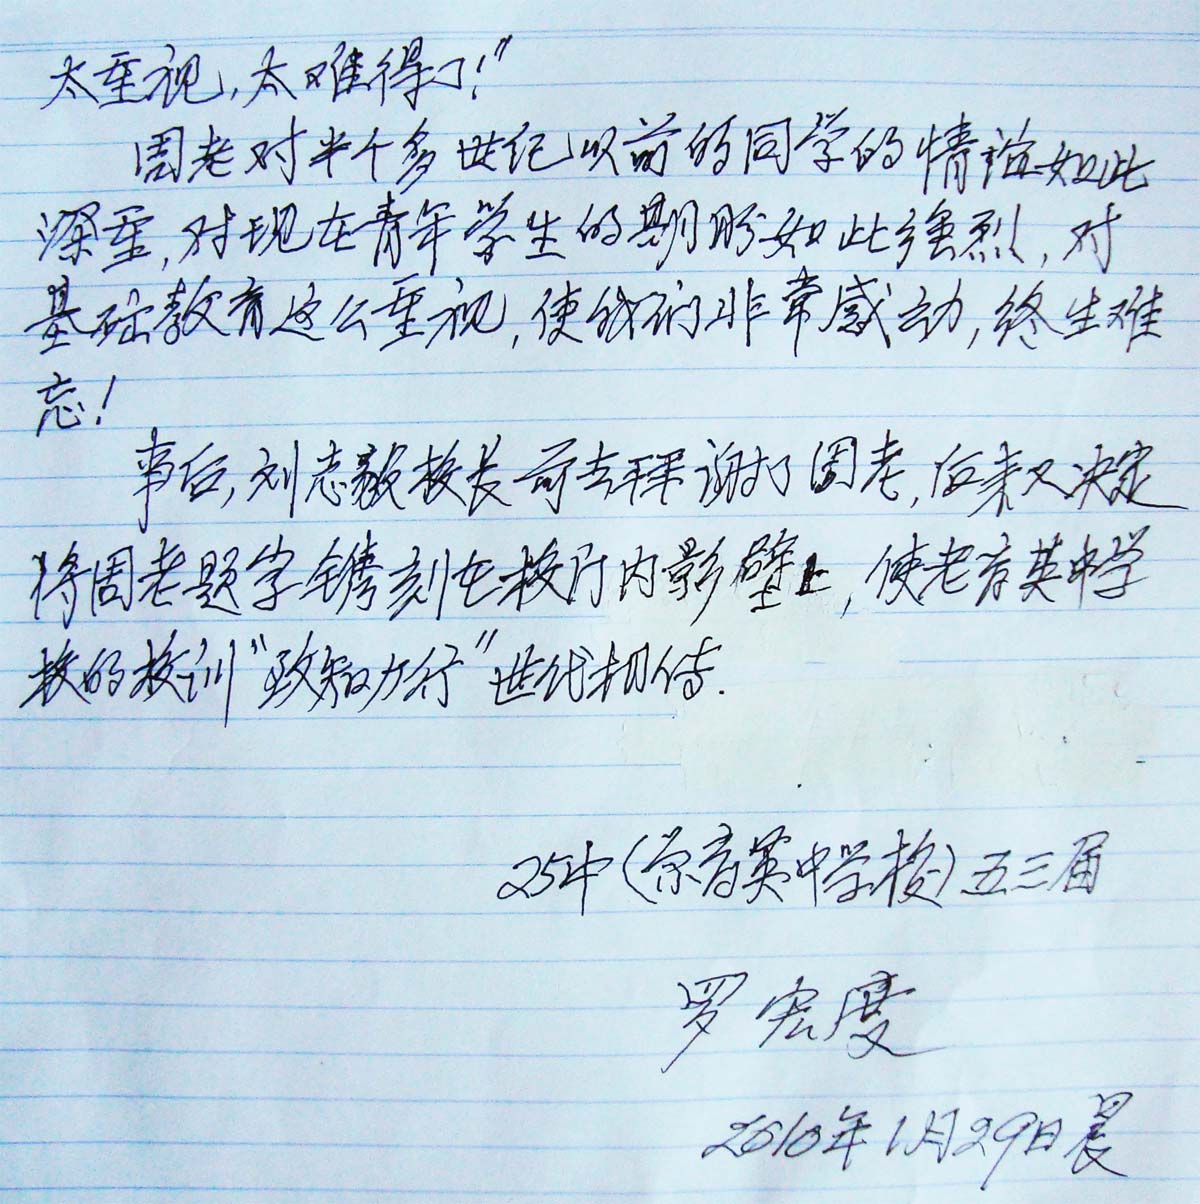 太重视,太难得了!”
周老对半个多世纪以前的同学的情谊如此
深重,对现在青年学生的期盼如此强烈,对
基础教育这么重视,使我们非常感动,终生难
忘!
事后,刘志毅校长前去拜谢了周老,后来又决定
将周老题字镌刻在校门内影壁上,使老育英中学
校的校训“致知力行”世代相传.
25中(原育英中学校)五三届
罗宏度
2010年1月29日晨